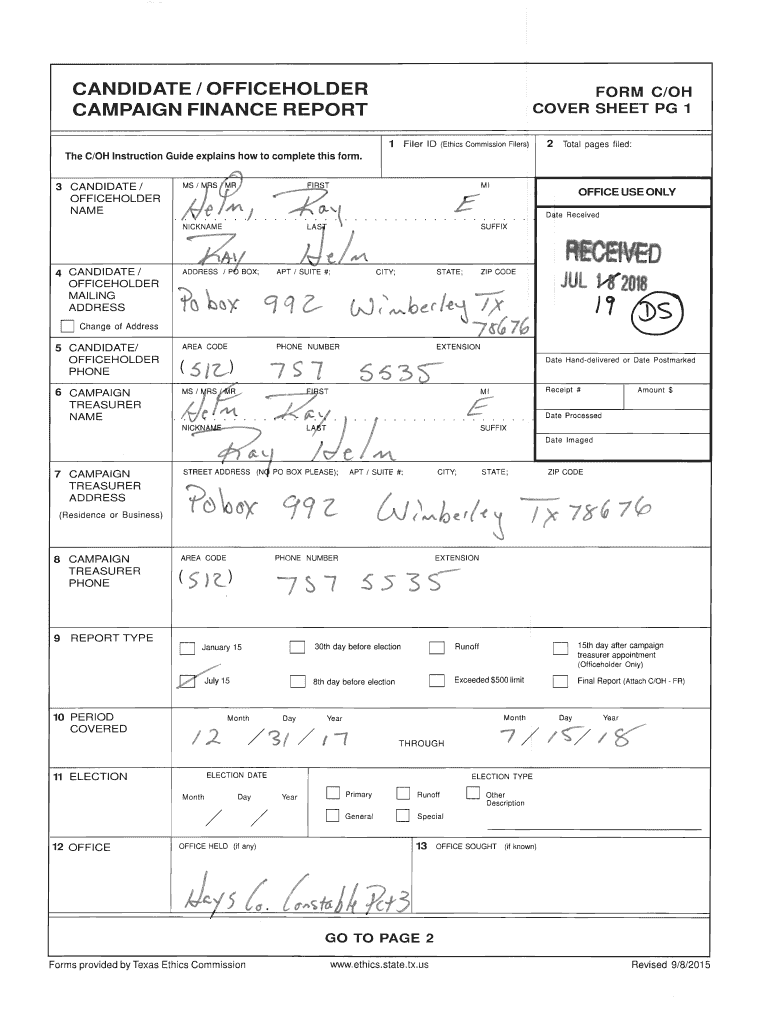 CANDIDATE / OFFICEHOLDER
CAMPAIGN FINANCE REPORT
FORM C/OH
COVER SHEET PG 1
The C/OH Instruction Guide explains how to complete this form.
1 Filer ID (Ethics Commission Filers)
2 Total pages filed:
3 CANDIDATE / OFFICEHOLDER NAME
MS / MRS / MR FIRST MI
Helm, Ray E
NICKNAME LAST SUFFIX
Ray Helm
OFFICE USE ONLY
Date Received
RECEIVED
JUL 18 2018
19 DS
4 CANDIDATE / OFFICEHOLDER MAILING ADDRESS
Change of Address
ADDRESS / PO BOX; APT / SUITE #; CITY; STATE; ZIP CODE
Po box 992 Wimberley Tx
78676
5 CANDIDATE/ OFFICEHOLDER PHONE
AREA CODE PHONE NUMBER EXTENSION
(512) 757 5535
Date Hand-delivered or Date Postmarked
6 CAMPAIGN TREASURER NAME
MS / MRS / MR FIRST MI
Helm Ray, E
NICKNAME LAST SUFFIX
Ray Helm
Receipt # Amount $
Date Processed
Date Imaged
7 CAMPAIGN TREASURER ADDRESS
(Residence or Business)
STREET ADDRESS (NO PO BOX PLEASE); APT / SUITE #; CITY; STATE; ZIP CODE
Po box 992 Wimberley Tx 78676
8 CAMPAIGN TREASURER PHONE
AREA CODE PHONE NUMBER EXTENSION
(512) 757 5535
9 REPORT TYPE
January 15 30th day before election Runoff 15th day after campaign treasurer appointment (Officeholder Only)
July 15 8th day before election Exceeded $500 limit Final Report (Attach C/OH - FR)
10 PERIOD COVERED
Month Day Year
12 / 31 / 17
THROUGH
Month Day Year
7 / 15 / 18
11 ELECTION
ELECTION DATE
Month Day Year
/ /
ELECTION TYPE
Primary Runoff Other Description
General Special
12 OFFICE
OFFICE HELD (if any)
Hays Co. Constable Pct 3
13 OFFICE SOUGHT (if known)
GO TO PAGE 2
Forms provided by Texas Ethics Commission www.ethics.state.tx.us Revised 9/8/2015